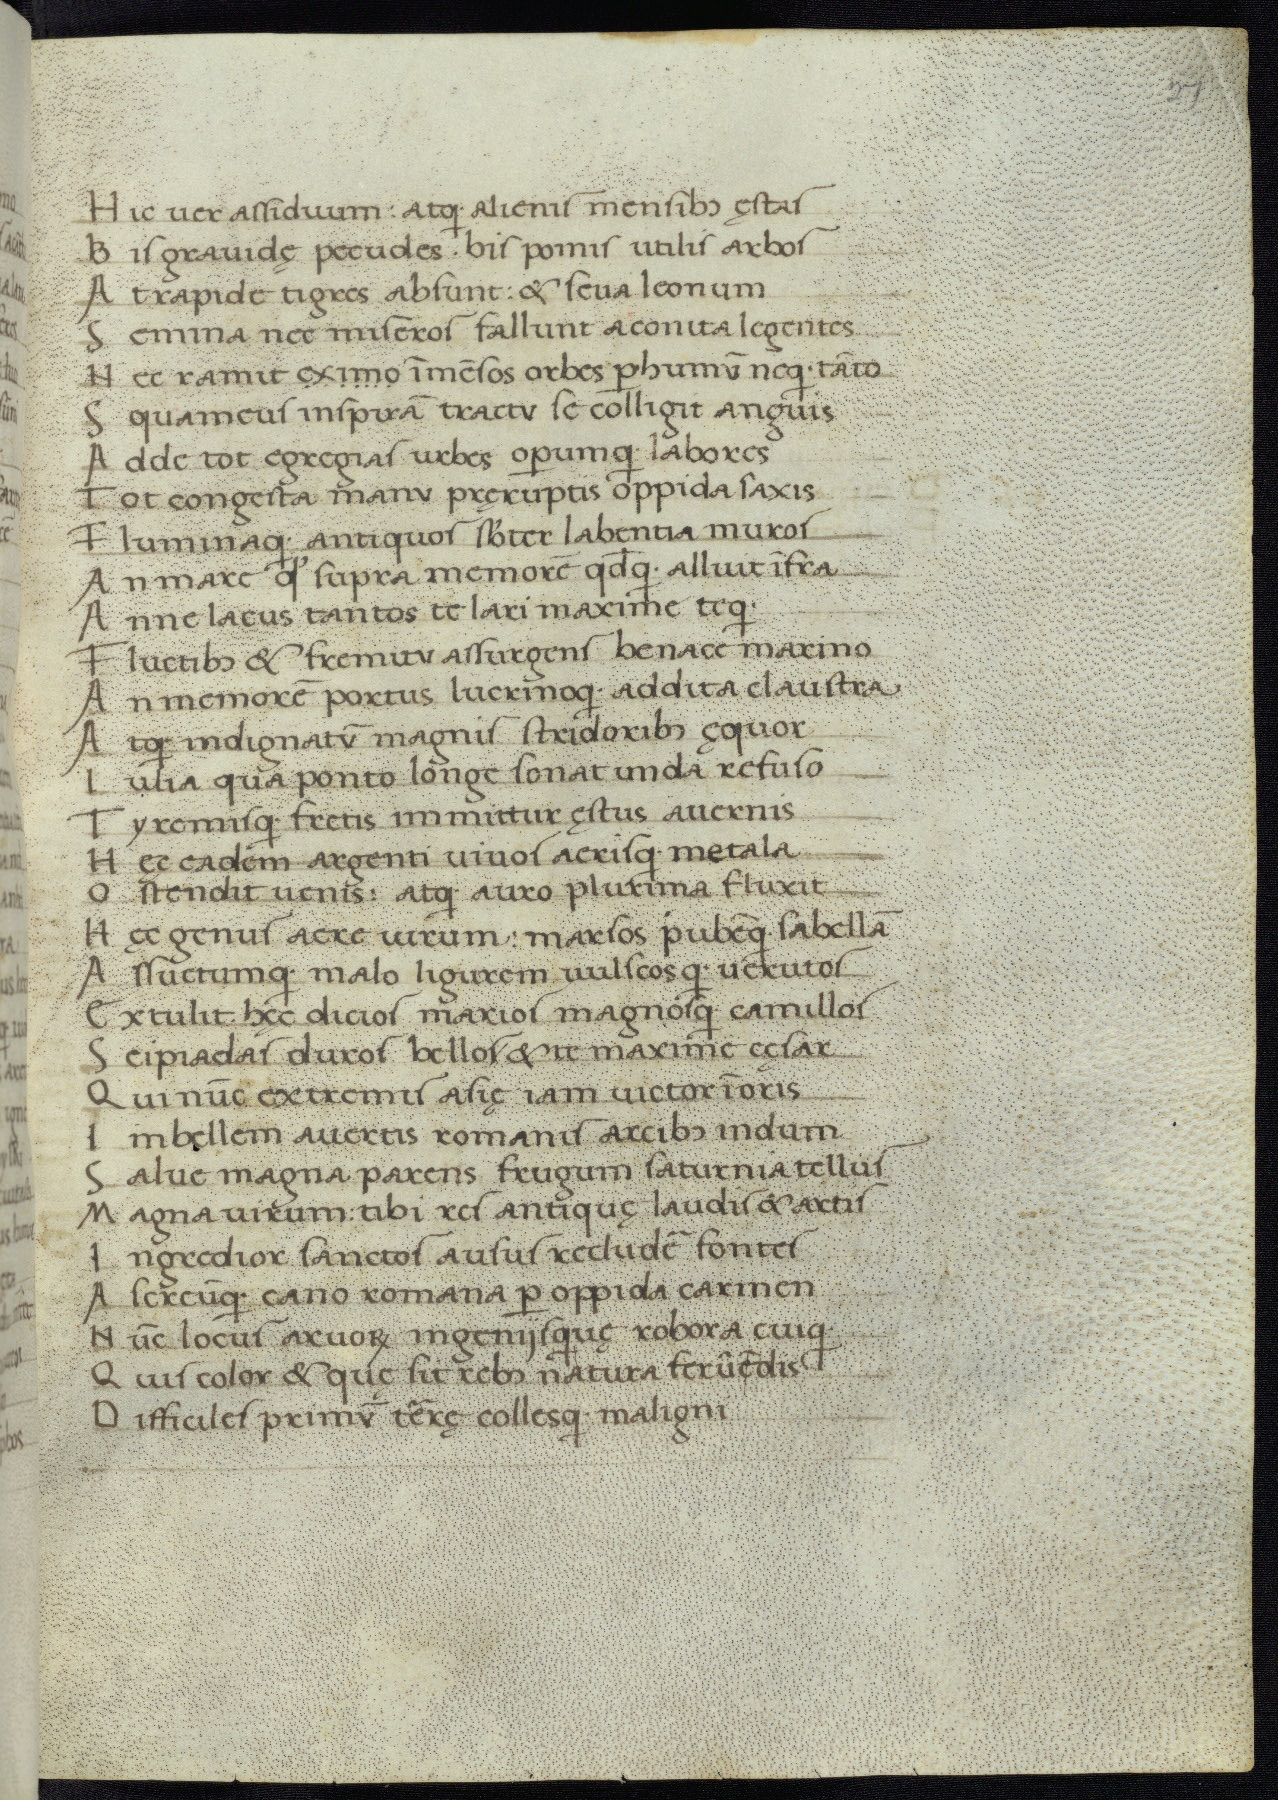 27
Hic uer assiduum: atq; alienis mensibꝰ ęstas
Bis grauidę pecudes. bis pomis utilis arbos
At rapide tigres absunt: & seua leonum
Semina nec miseros fallunt aconita legentes
Nec ramit eximo īmēsos orbes ꝑ humū neq; tāto
Squameus inspirā tractu se colligit anguis
Adde tot egregias urbes operumq; labores
Tot congesta manu pręruptis oppida saxis
Fluminaq; antiquos sb̄ter labentia muros
An mare qđ supra memorē qđq; alluit īfra
Anne lacus tantos te lari maxime teq;
Fluctibꝰ & fremitu assurgens benace marino
An memorē portus lucrinoq; addita claustra
Atq; indignatū magnis stridoribꝰ ęquor
Iulia qua ponto longe sonat unda refuso
Tyrenisq; fretis inmittur ęstus auernis
Hęc eadem argenti viuos aerisq; metala
Ostendit uenis: atq; auro plurima fluxit
Hęc genus acre uirum: marsos pubēq; sabellā
Assuetumq; malo ligurem uulscosq; uerutos
Extulit hęc dicios marios magnosq; camillos
Scipiadas duros bellos & te maxime cęsar
Qui nūc extremis asię iam uictor ī oris
Imbellem auertis romanis arcibꝰ indum
Salue magna parens frugum saturnia tellus
Magna uirum: tibi res antiquę laudis & artis
Ingredior sanctos ausus recludē fontes
Ascreūq; cano romana ꝑ oppida carmen
Nūc locus aruoꝝ ingenijsquę robora cuiq;
Quis color & quę sit rebꝰ natura ferūēdis
Difficiles primū tērę collesq; maligni